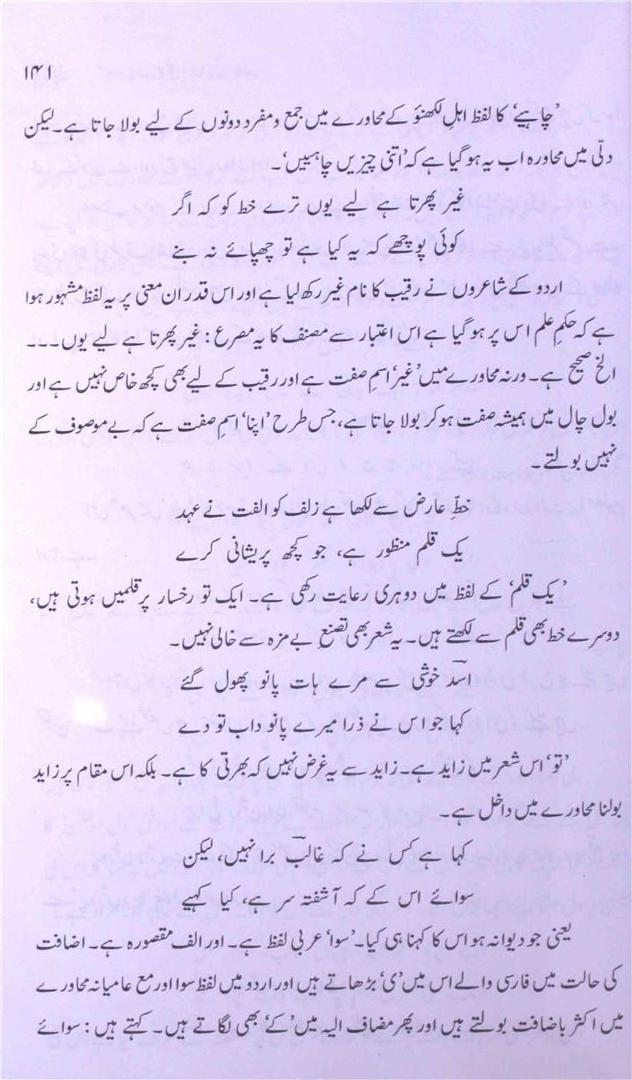 ۱۴۱
’چاہیے‘ کا لفظ اہل لکھنؤ کے محاورے میں جمع و مفرد دونوں کے لیے بولا جاتا ہے۔ لیکن
دلّی میں محاورہ اب یہ ہو گیا ہے کہ ’اتنی چیزیں چاہییں‘۔
غیر پھرتا ہے لیے یوں ترے خط کو کہ اگر
کوئی پوچھے کہ یہ کیا ہے تو چھپائے نہ بنے
اردو کے شاعروں نے رقیب کا نام غیر رکھ لیا ہے اور اس قدر ان معنی پر یہ لفظ مشہور ہوا
ہے کہ حکمِ علم اس پر ہو گیا ہے اس اعتبار سے مصنف کا یہ مصرع : غیر پھرتا ہے لیے یوں ۔۔۔
الخ صحیح ہے۔ ورنہ محاورے میں ’غیر‘ اسمِ صفت ہے اور رقیب کے لیے بھی کچھ خاص نہیں ہے اور
بول چال میں ہمیشہ صفت ہو کر بولا جاتا ہے، جس طرح ’اپنا‘ اسمِ صفت ہے کہ بے موصوف کے
نہیں بولتے۔
خطِّ عارض سے لکھا ہے زلف کو الفت نے عہد
یک قلم منظور ہے، جو کچھ پریشانی کرے
’یک قلم‘ کے لفظ میں دوہری رعایت رکھی ہے۔ ایک تو رخسار پر قلمیں ہوتی ہیں،
دوسرے خط بھی قلم سے لکھتے ہیں۔ یہ شعر بھی تصنعِ بے مزہ سے خالی نہیں۔
اسدؔ خوشی سے مرے ہات پانو پھول گئے
کہا جو اس نے ذرا میرے پانو داب تو دے
’تو‘ اس شعر میں زاید ہے۔ زاید سے یہ غرض نہیں کہ بھرتی کا ہے۔ بلکہ اس مقام پر زاید
بولنا محاورے میں داخل ہے۔
کہا ہے کس نے کہ غالبؔ برا نہیں، لیکن
سوائے اس کے کہ آشفتہ سر ہے، کیا کہیے
یعنی جو دیوانہ ہو اس کا کہنا ہی کیا۔ ’سوا‘ عربی لفظ ہے۔ اور الف مقصورہ ہے۔ اضافت
کی حالت میں فارسی والے اس میں ’ی‘ بڑھاتے ہیں اور اردو میں لفظ سوا اور مع عامیانہ محاورے
میں اکثر باضافت بولتے ہیں اور پھر مضاف الیہ میں ’کے‘ بھی لگاتے ہیں۔ کہتے ہیں : سوائے